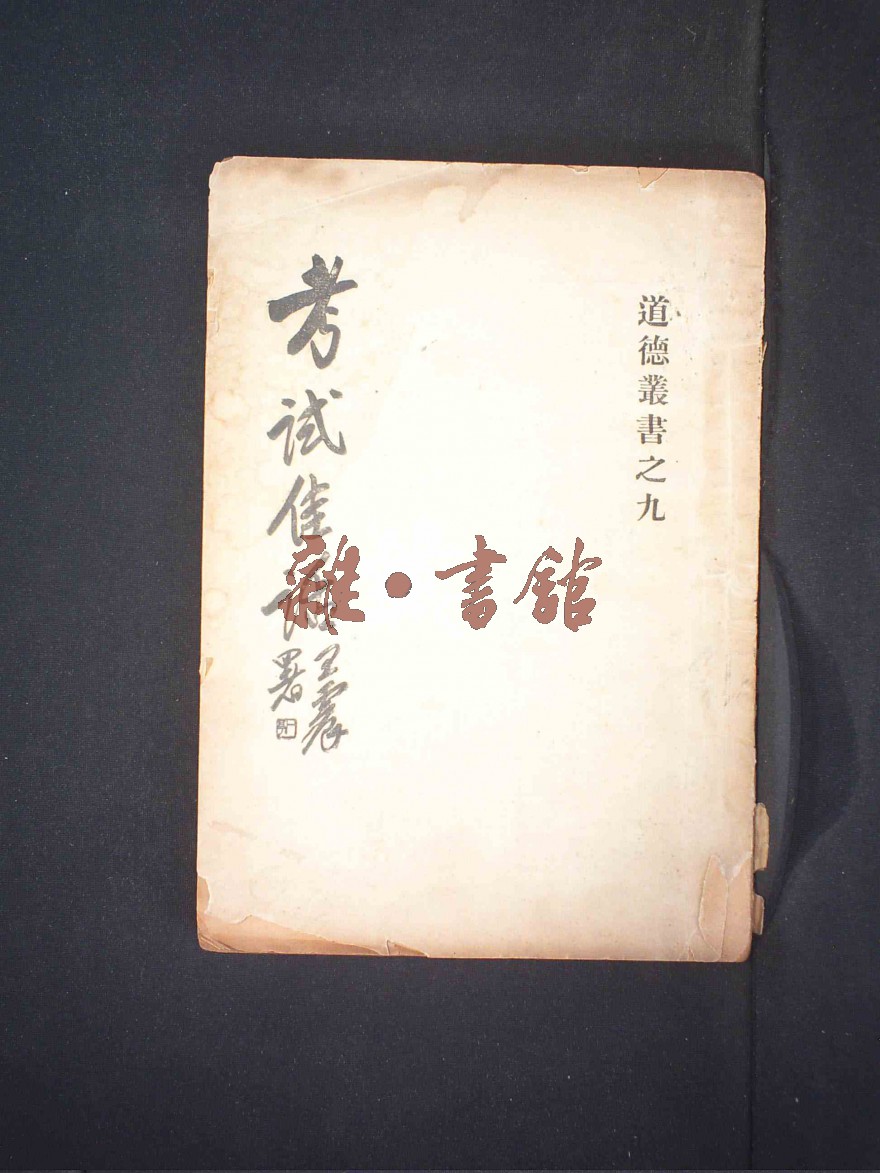 道德叢書之九
考試佳話
王震
署
雜·書館